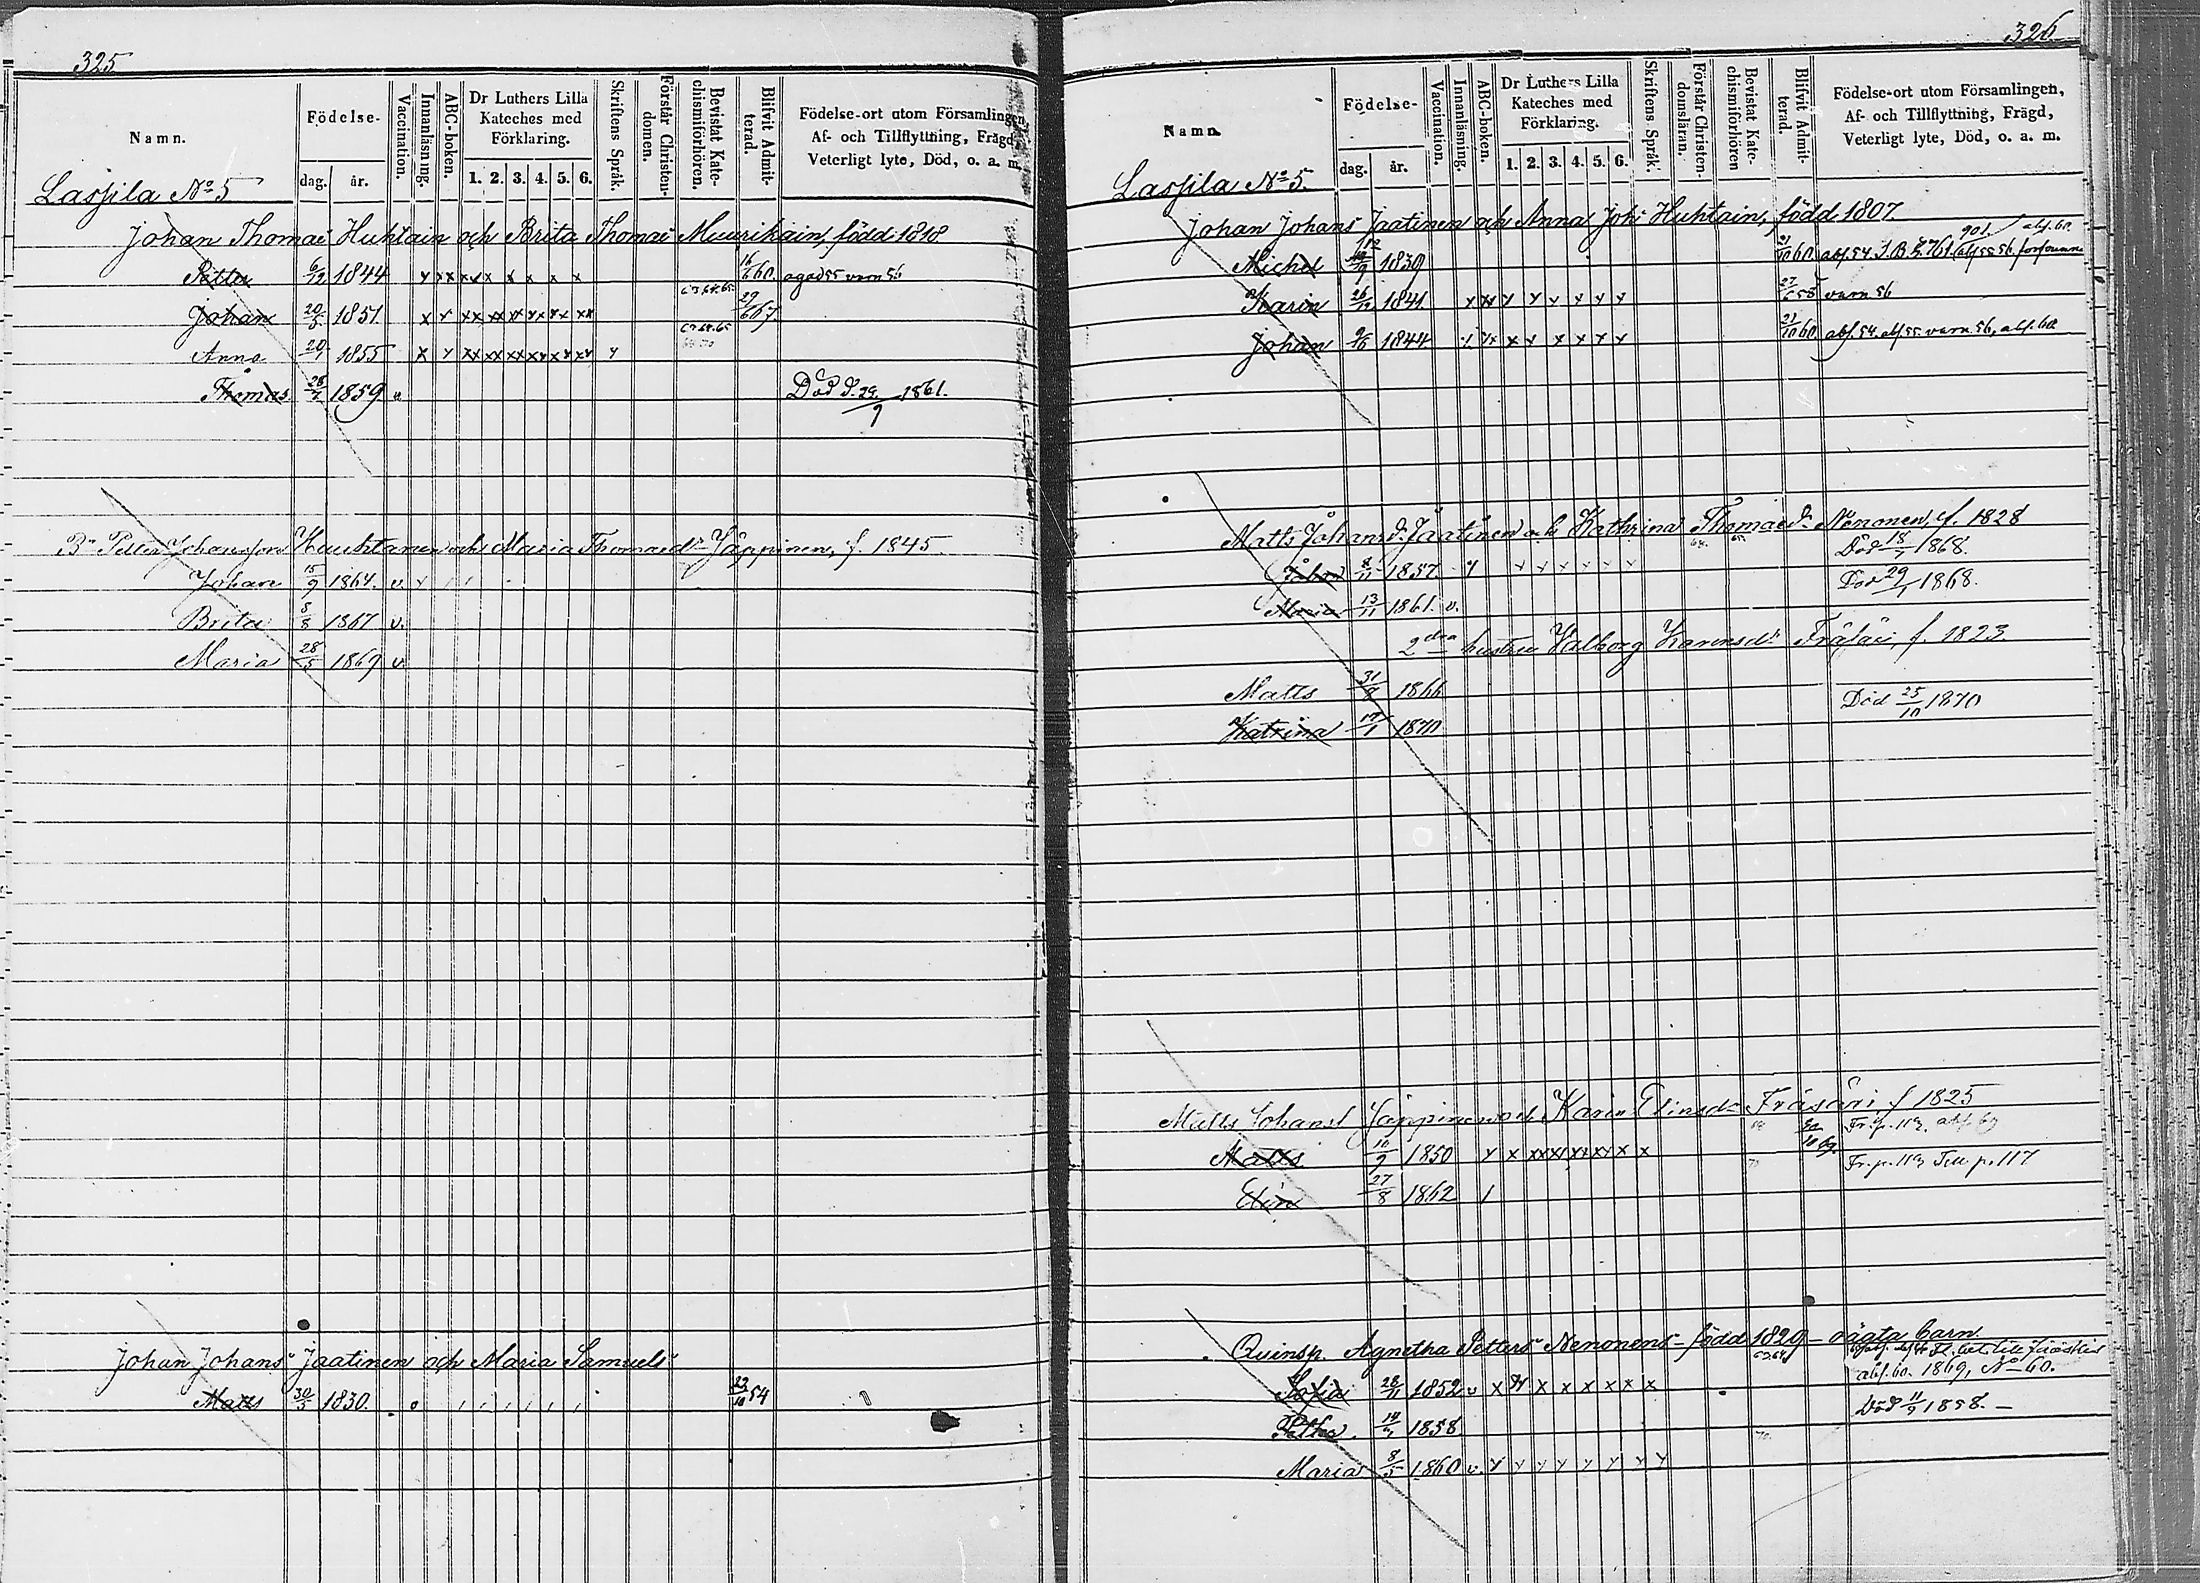 325
Namn.
Födelse-
dag. år.
Vaccination.
Innanläsning.
ABC-boken.
Dr Luthers Lilla
Kateches med
Förklaring.
1. 2. 3. 4. 5. 6.
Skriftens Språk.
Förstår Christen-
domen.
Bevistat Kate-
chismiförhören.
Blifvit Admit-
terad.
Födelse-ort utom Församlingen,
Af- och Tillflyttning, Frägd,
Veterligt lyte, Död, o. a. m.
Lassila No 5
Johan Thomas Huhtain och Brita Thomas Muurikain, född 1818
Petter 6/12 1844 16/6 60.
Johan 20/5 1851 63.64.65. 29/6 67.
Anna 20/1 1855 63.64.65
Thomas 28/7 1859 v Död d. 29/9 1861.
Petter Johansson Huuhtanen och Maria Thomasdr Jäppinen, f. 1845
Johan 15/9 1864. v.
Brita 8/8 1867 v.
Maria 28/5 1869 v.
Johan Johans Jaatinen och Maria Samuels
Matts 30/5 1830. 23/10 54
326
Namn.
Födelse-
dag. år.
Vaccination.
Innanläsning.
ABC-boken.
Dr Luthers Lilla
Kateches med
Förklaring.
1. 2. 3. 4. 5. 6.
Skriftens Språk.
Förstår Christen-
domsläran.
Bevistat Kate-
chismiförhören
Blifvit Admit-
terad.
Födelse-ort utom Församlingen,
Af- och Tillflyttning, Frägd,
Veterligt lyte, Död, o. a. m.
Lassila No 5.
Johan Johans Jaatinen och Anna Joh: Huhtain, född 1807.
Michel 1839 21/10 60.
Karin 26/12 1841. 27/6 58 varn 56
Johan 9/6 1844 21/10 60. abs. 54. abs 55. varn. 56, abs. 60.
Matts Johans Jaatinen och Kathrina Thomasdr Nenonen, f. 1828
Johan 8/11 1857. Död 18/7 1868.
Maria 13/11 1861. v. Död 29/1 1868.
2dra hustru Walborg Larensdr Fräsäri, f. 1823
Matts 31/8 1866
Katrina 17/1 1870 Död 25/10 1870
Matts Johans Jäppinen och Karin Elinsdr Fräsäri f 1825
Matts 16/9 1850 Fr. p. 119. abs. 69
Elin 27/8 1862 Fr. p. 119 Till p. 117
Quinsp. Agnetha Petters Nenonens född 1829 oägta barn
Sofia 28/11 1852 v abs. 60. 1869, No 60.
Petter 14/4 1858 Död 11/9 1858. —
Maria 8/5 1860 v.